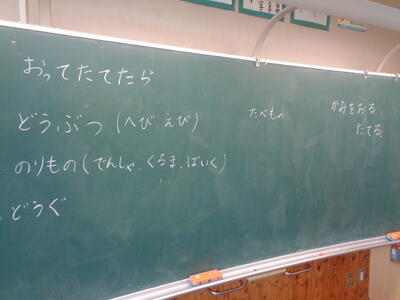 おってたてたら
どうぶつ(へび、えび)
のりもの(でんしゃ、くるま、ばいく)
どうぐ
たべもの
かみをおる
たてる